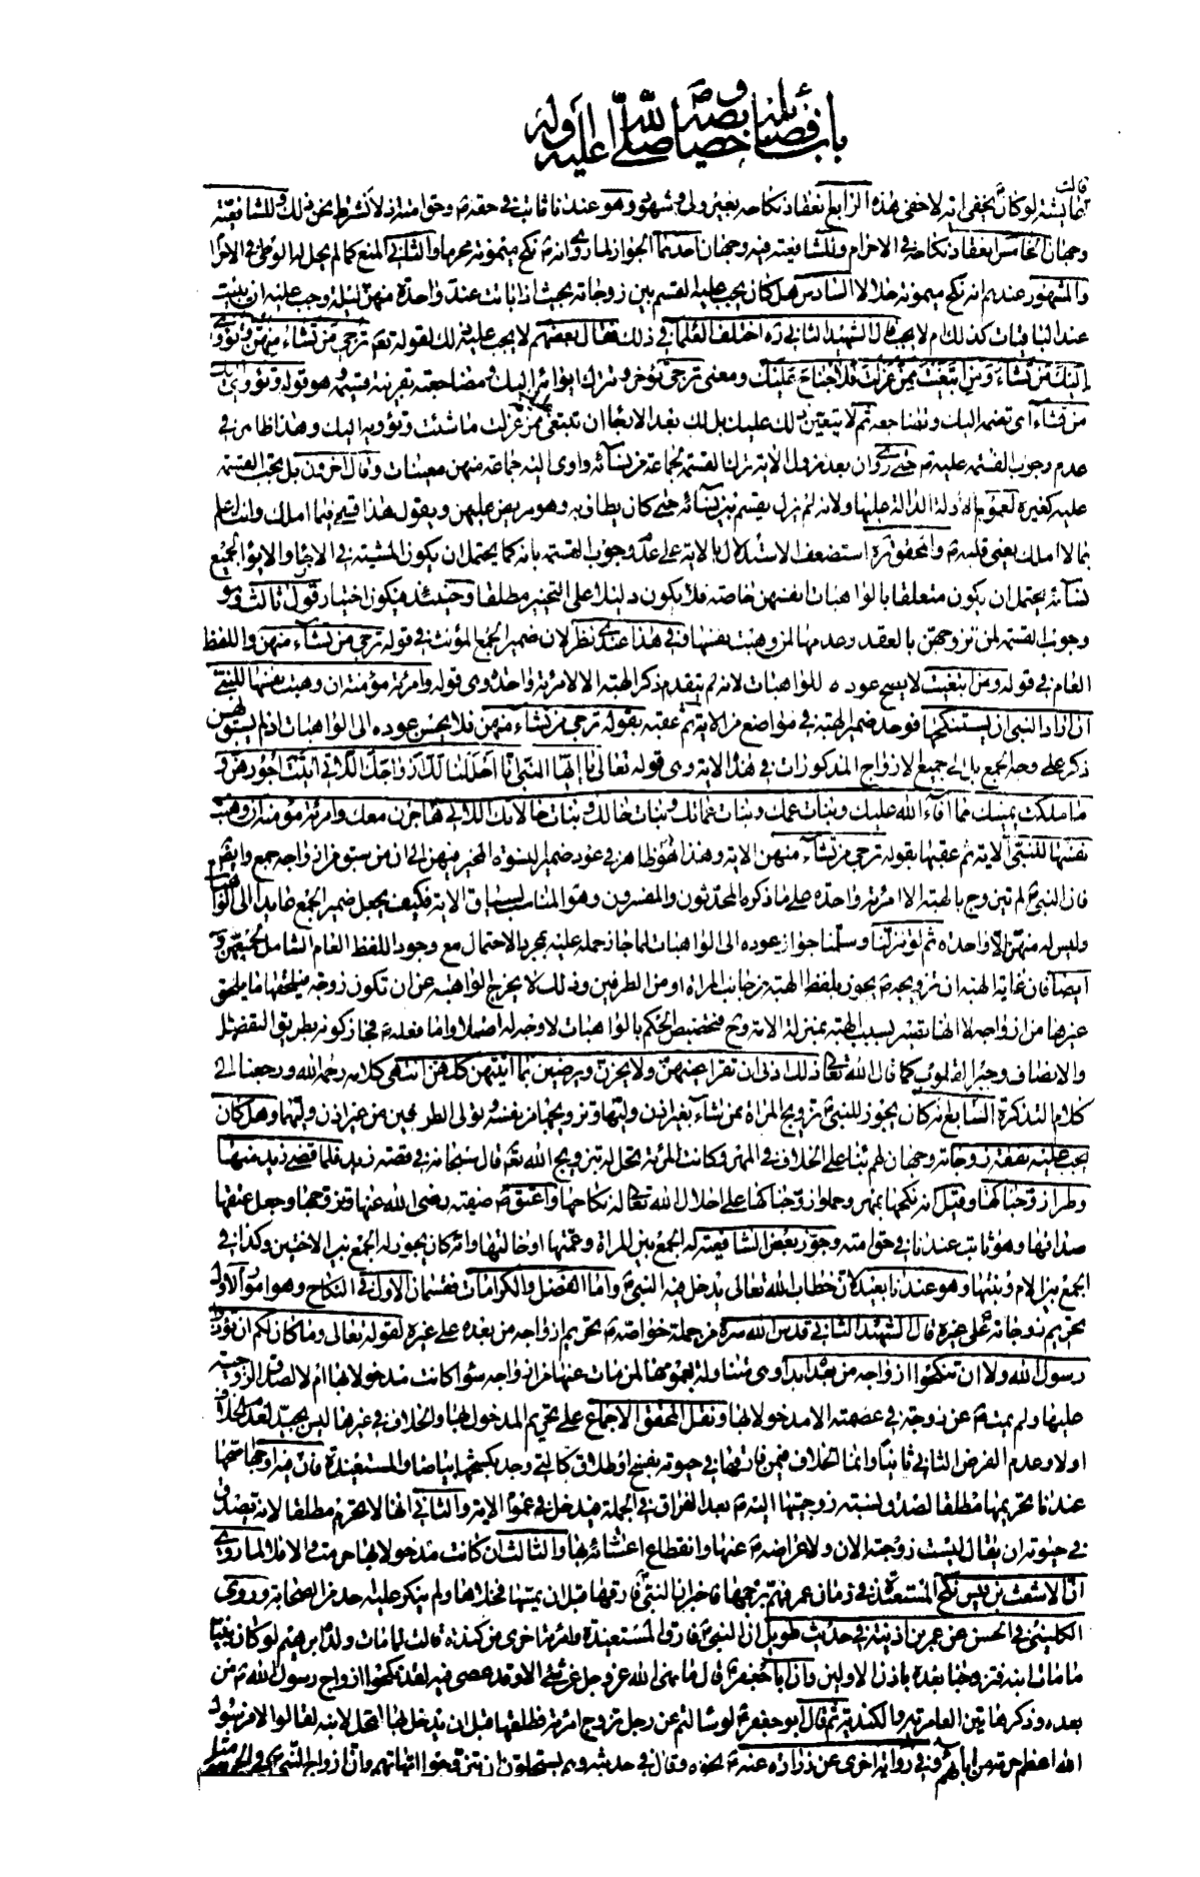 باب فضائله و خصائصه صلى الله عليه وآله
قالت
عايشة لو كان يخفى انه لاخفى هذه الرابع انعقاد نكاحه بغير ولى وشهود وهو عندنا ثابت في حقه ص وحق امته اذ لا نشترط نحن ذلك وللشافعية
وجهان الخامس انعقاد نكاحه في الاحرام وللشافعية فيه وجهان احدهما الجواز لما روى انه ص نكح ميمونة محرما والثاني المنع كما لم يحل له الوطى في الاحرام
والمشهور عندهم انه نكح ميمونة حلالا السادس هل كان يجب عليه القسم بين زوجاته بحيث اذا باتت عند واحدة منهن ليلة وجب عليه ان يبيت
عند الباقيات كذلك ام لا يجب قال الشهيد الثاني ره اختلف العلماء في ذلك فقال بعضهم لا يجب عليه ذلك لقوله تعم ترجى من تشاء منهن وتؤوى
اليك من تشاء ومن ابتغيت ممن عزلت فلا جناح عليك ومعنى ترجى تؤخر وتترك ايوائه اليك ومضاجعته بقرينة قسيمه وهو قوله وتؤوى اليك
من تشاء اى تضمه اليك وتضاجعه ثم لا يتعين ذلك عليك بل لك بعد الارجاء ان تبتغى ممن عزلت ما شئت وتؤويه اليك وهذا ظاهر في
عدم وجوب القسمة عليه ص حتى روى ان بعد نزول الاية ترك القسمة لجماعة من نسائه واوى اليه جماعة منهن معينات وقال اخرون بل تجب القسمة
عليه كغيره لعموم الادلة الدالة عليها ولانه لم يزل يقسم بين نسائه حتى كان يطاف به وهو مريض عليهن ويقول هذا قسمى فيما املك وانت اعلم
بما لا املك يعنى قلبه ص والمحقق ره استضعف الاستدلال بالاية على عدم وجوب القسمة بانه كما يحتمل ان يكون المشية في الارجاء والايواء لجميع
نسائه يحتمل ان يكون متعلقا بالواهبات انفسهن خاصة فلا يكون دليلا على التخيير مطلقا وحينئذ فيكون اختيار قول ثالث وهو
وجوب القسمة لمن تزوجهن بالعقد وعدمها لمن وهبت نفسها وفي هذا عندى نظر لان ضمير الجمع المؤنث في قوله ترجى من تشاء منهن واللفظ
العام في قوله ومن ابتغيت لا يصح عوده للواهبات لانه لم يتقدم ذكر الهبة الا لامرئة واحدة وهى قوله وامرئة مؤمنة ان وهبت نفسها للنبى
ان اراد النبى ان يستنكحها فوحد ضمير الهبة في مواضع من الاية ثم عقبه بقوله ترجى من تشاء منهن فلا يحسن عوده الى الواهبات اذ لم يسبق لهن
ذكر على وجه الجمع بل الى جميع الازواج المذكورات في هذه الاية وهى قوله تعالى يا ايها النبى انا احللنا لك ازواجك اللاتى اتيت اجورهن و
ما ملكت يمينك مما افاء الله عليك وبنات عمك وبنات عماتك وبنات خالك وبنات خالاتك اللاتى هاجرن معك وامرئة مؤمنة ان وهبت
نفسها للنبى الاية ثم عقبها بقوله ترجى من تشاء منهن الاية وهذا ظاهر في عود ضمير النسوة المخير فيهن الى ان من سبق من ازواجه جمع وايض
فان النبى ص لم يتزوج بالهبة الا امرئة واحدة على ما ذكره المحدثون والمفسرون وهو المناسب لسياق الاية فكيف يجعل ضمير الجمع عايدا الى الواهبات
وليس له منهن الا واحدة ثم لو تنزلنا وسلمنا جواز عوده الى الواهبات لما جاز حمله عليه بمجرد الاحتمال مع وجود اللفظ العام الشامل لجميعهن و
ايضا فان غاية الهبة ان تزويجه ص يجوز بلفظ الهبة من جانب المراة او من الطرفين وذلك لا يخرج الواهبة عن ان تكون زوجة فيلحقها ما يلحق
غيرها من ازواجه لا انها تصير بسبب الهبة بمنزلة الامة وح فتخصيص الحكم بالواهبات لا وجه له اصلا واما فعله ص فجاز كونه بطريق التفضل
والانصاف وجبر القلوب كما قال الله تعالى ذلك ادنى ان تقر اعينهن ولا يحزن ويرضين بما اتيتهن كلهن انتهى كلامه رحمه الله ورجعنا الى
كلام التذكرة السابع انه كان يجوز للنبى ص تزويج المراة ممن شاء بغير اذن وليها وتزويجها من نفسه وتولى الطرفين من غير اذن وليها وهل كان
يجب عليه نفقة زوجاته وجهان لهم بناء على الخلاف في المهر وكانت المرئة تحل له بتزويج الله تعم قال سبحانه في قصة زيد فلما قضى زيد منها
وطرا زوجناكها وقيل انه نكحها بمهر وحملوا زوجناكها على احلال الله تعالى له نكاحها واعتق ص صفية رضى الله عنها وتزوجها وجعل عتقها
صداقها وهو ثابت عندنا في حق امته وجوز بعض الشافعية له الجمع بين المراة وعمتها او خالتها وانه كان يجوز له الجمع بين الاختين وكذا في
الجمع بين الام وبنتها وهو عندنا بعيد لان خطاب الله تعالى يدخل فيه النبى ص واما الفضل والكرامات فقسمان الاول في النكاح وهو امور الاول
تحريم زوجاته ص على غيره قال الشهيد الثانى قدس الله سره من جملة خواصه ص تحريم ازواجه من بعده على غيره لقوله تعالى وما كان لكم ان تؤذوا
رسول الله ولا ان تنكحوا ازواجه من بعده ابدا وهى متناولة بعمومها لمن مات عنها من ازواجه سواء كانت مدخولا بها ام لا لصدق الزوجية
عليها ولم يمت ص عن زوجة في عصمته الا مدخولا بها ونقل المحقق الاجماع على تحريم المدخول بها والخلاف في غيرها ليس بجيد لعدم الخلاف
اولا وعدم الفرض الثانى ثانيا وانما الخلاف فيمن فارقها في حيوته بفسخ او طلاق كالتى وجد بكشحها بياضا والمستعيذة فان فيه اوجها اصحها
عندنا تحريمها مطلقا لصدق نسبة زوجيتها اليه ص بعد الفراق في الجملة فيدخل في عموم الاية والثانى انها لا تحرم مطلقا لانه تصدق
في حيوته ان يقال ليست زوجته الان ولاعراضه ص عنها وانقطاع اعتنائه بها والثالث ان كانت مدخولا بها حرمت والا فلا لما روى
ان الاشعث بن قيس نكح المستعيذة في زمان عمر فهم برجمها فاخبر ان النبى ص فارقها قبل ان يمسها فخلاها ولم ينكر عليه احد من الصحابة وروى
الكلينى في الحسن عن عمر بن اذينة في حديث طويل ان النبى ص فارق المستعيذة وامرئة اخرى من كندة قالت لما مات ولده ابرهيم لو كان نبيا
ما مات ابنه فتزوجتا بعده باذن الاولين وان ابا جعفر ع قال ما نهى الله عز وجل عن شئ الا وقد عصى فيه لقد نكحوا ازواج رسول الله ص من
بعده وذكر هاتين العامرية والكندية ثم قال ابو جعفر ع لو سالتم عن رجل تزوج امرئة فطلقها قبل ان يدخل بها اتحل لابنه لقالوا لا فرسول
الله اعظم حرمة من ابائهم وفي رواية اخرى عن زرارة عنه ع نحوه وقال في حديثه وهم يستحلون ان يتزوجوا امهاتهم وان ازواج النبى ص في الحرمة مثل